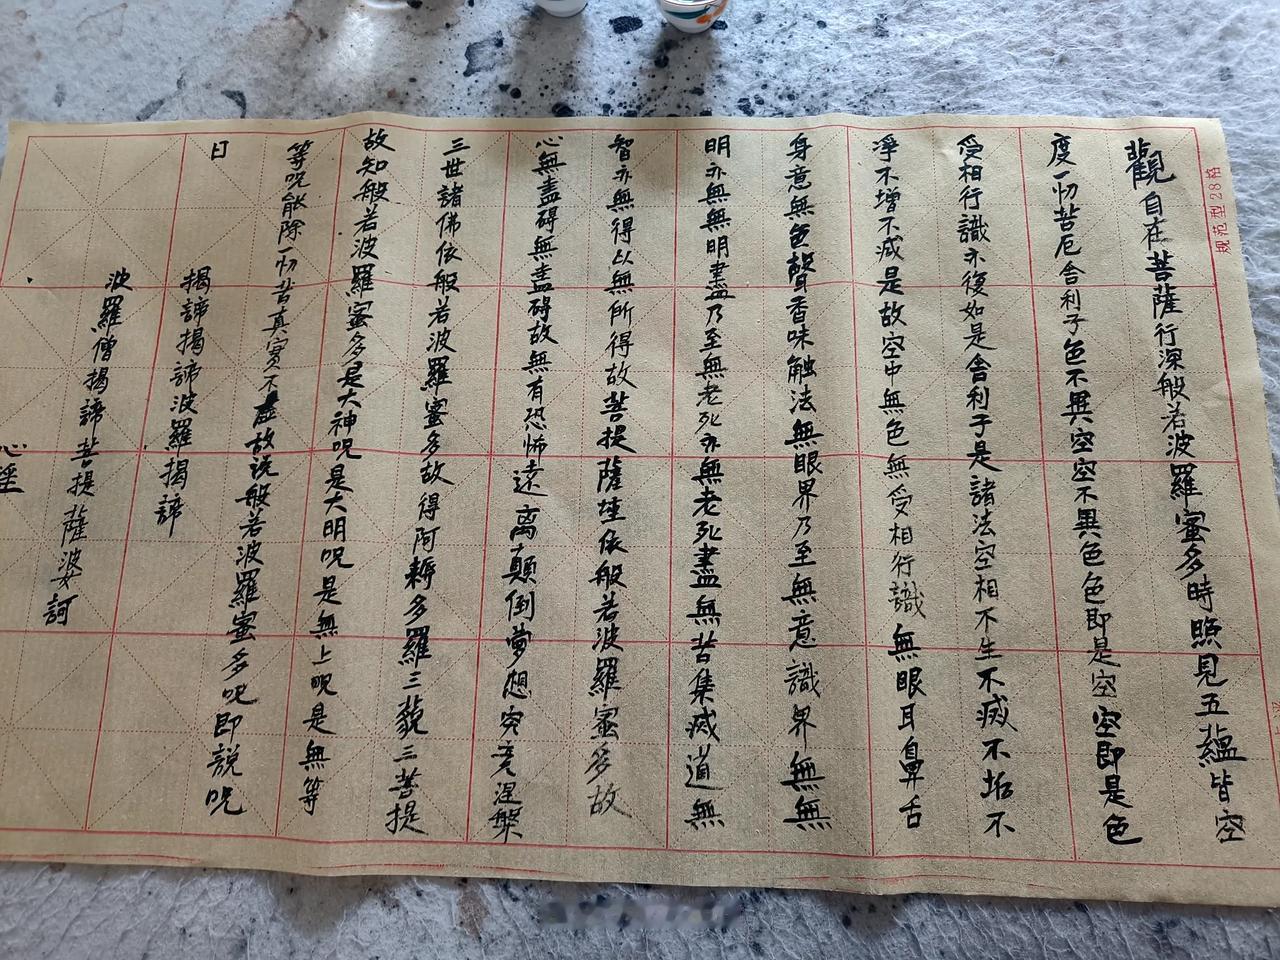 规范型28格
觀自在菩薩行深般若波羅蜜多時照見五蘊皆空
度一切苦厄舍利子色不異空空不異色色即是空空即是色
受相行識亦後如是舍利子是諸法空相不生不滅不垢不
淨不增不減是故空中無色無受相行識無眼耳鼻舌
身意無色聲香味触法無眼界乃至無意識界無無
明亦無無明盡乃至無老死亦無老死盡無苦集滅道無
智亦無得以無所得故菩提薩埵依般若波羅蜜多故
心無盖碍無盖碍故無有恐怖遠离顛倒夢想究竟涅槃
三世諸佛依般若波羅蜜多故得阿耨多羅三藐三菩提
故知般若波羅蜜多是大神呪是大明呪是無上呪是無等
等呪能除一切苦真實不虛故說般若波羅蜜多呪即說呪
曰
揭諦揭諦波羅揭諦
波羅僧揭諦菩提薩婆訶
心經